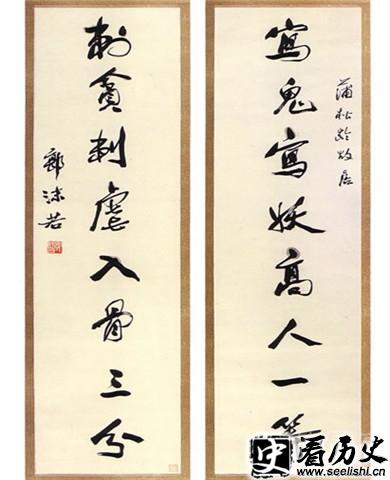 蒲松龄故居
寫鬼寫妖高人一等
刺貪刺虐入骨三分
郭沫若
史 看历史
www.seelishi.com